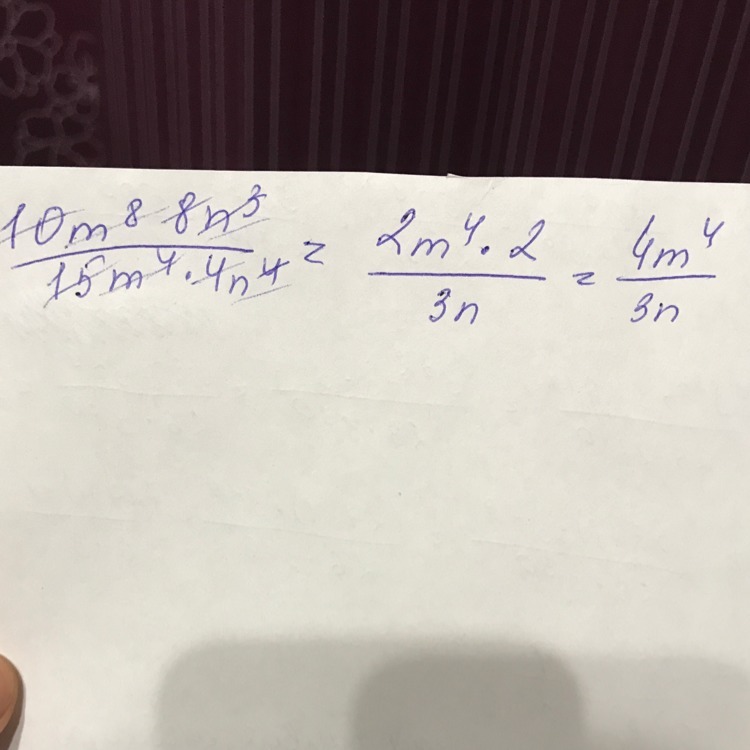 10m⁸ 8n³ / 15m⁴ · 4n⁴ = 2m⁴ · 2 / 3n = 4m⁴ / 3n